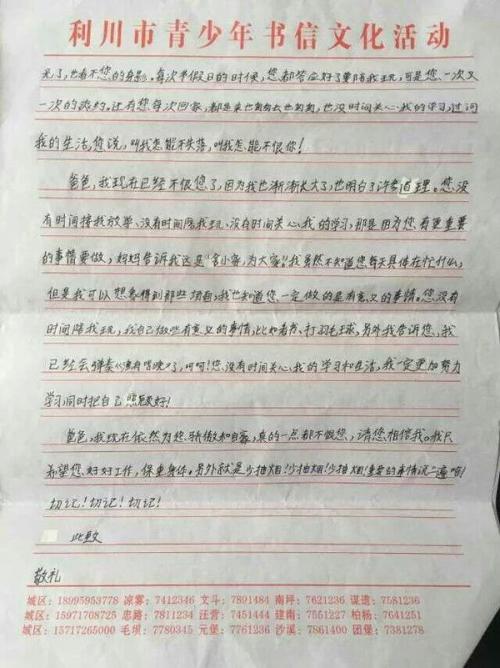 利川市青少年书信文化活动
完了，也看不您的身影。每次半假日的时候，您都答应好了要陪我玩，可是您一次又
一次的爽约。还有您每次回家，都是来也匆匆去也匆匆，也没时间关心我的学习，过问
我的生活。您说，叫我怎能不失落，叫我怎能不恨你！
爸爸，我现在已经不恨您了，因为我也渐渐长大了，也明白了许多道理。您没
有时间接我放学、没有时间陪我玩、没有时间关心我的学习，那是因为您有更重要
的事情要做，妈妈告诉我这是“舍小家，为大家”！我虽然不知道您每天具体在忙什么，
但是我可以想象得到那些场面，我也知道您一定做的是有意义的事情。您没有
时间陪我玩，我自己做些有意义的事情，比如看书、打羽毛球，另外我告诉您，我
已经会弹奏《渔舟唱晚》了，呵呵！您没有时间关心我的学习和生活，我一定更加努力
学习同时把自己照顾好！
爸爸，我现在依然为您骄傲和自豪，真的一点都不恨您，请您相信我。我只
希望您好好工作，保重身体。另外就是少抽烟！少抽烟！少抽烟！重要的事情说三遍哟！
切记！切记！切记！
此致
敬礼
城区：18995953778 凉雾：7412346 文斗：7891484 南坪：7621236 谋道：7581236
城区：15971708725 忠路：7811234 汪营：7451444 建南：7551227 柏杨：7641251
城区：15717265000 毛坝：7780345 元堡：7761236 沙溪：7861400 团堡：7381278